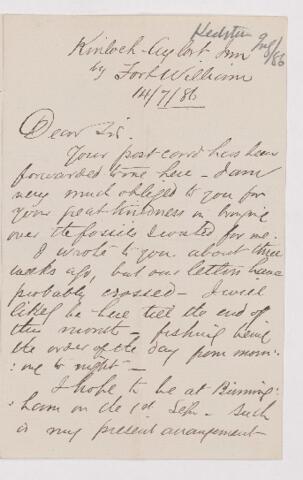 Kinloch-Aylort Inn
by Fort William
14/7/86
Dear Sir.
Your post card has been
forwarded to me here - I am
very much obliged to you for
your great kindness in bringing
over the fossils I wanted for me.
I wrote to you about three
weeks ago, but our letters have
probably crossed - I will
likely be here till the end of
this month - fishing being
the order of the day from morn-
:ing to night -
I hope to be at Birming-
:ham on the 1st Sep. - such
is my present arrangement